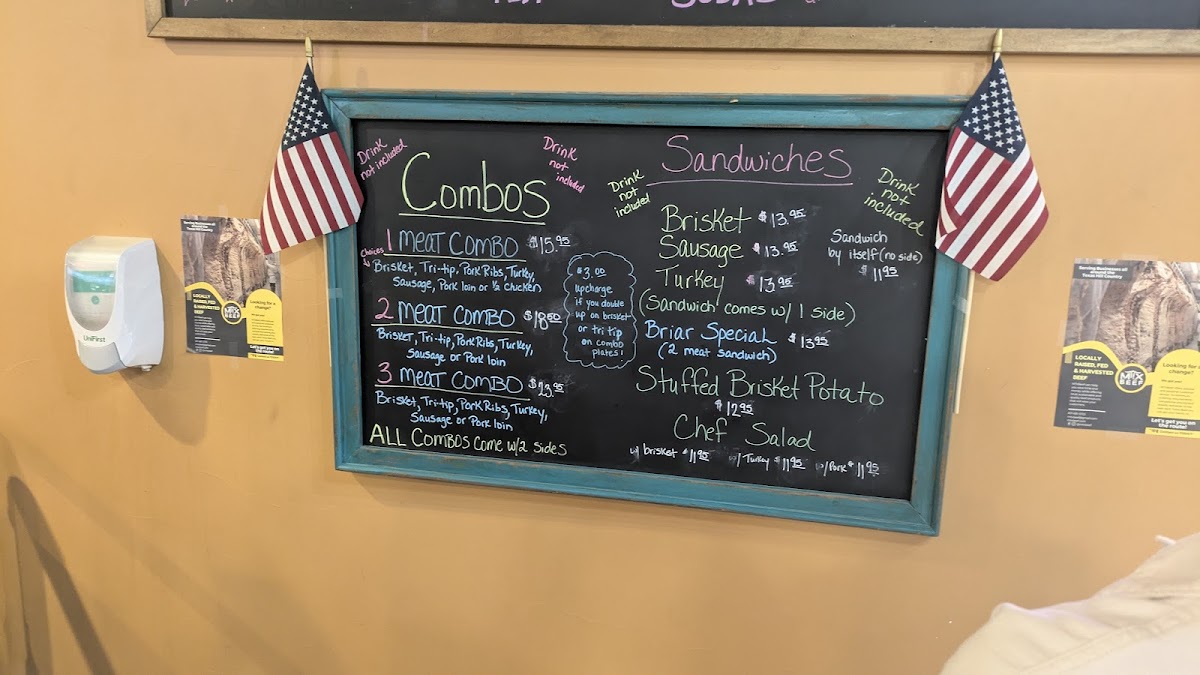 Drink
not included
Combos
Drink
not
included
1 MEAT COMBO $15.95
Choices
Brisket, Tri-tip, Pork Ribs, Turkey,
Sausage, Pork loin or ½ Chicken
2 MEAT COMBO $18.50
Brisket, Tri-tip, Pork Ribs, Turkey,
Sausage or Pork loin
3 MEAT COMBO $23.95
Brisket, Tri-tip, Pork Ribs, Turkey,
Sausage or Pork loin
ALL COMBOS COME W/2 SIDES
$3.00
upcharge
if you double
up on brisket
or tri tip
on combo
plates!
Sandwiches
Drink
not
included
Drink
not
included
Brisket $13.95
Sausage $13.95
Turkey $13.95
(Sandwich comes w/ 1 side)
Sandwich
by itself (no side)
$11.95
Briar Special $13.95
(2 meat sandwich)
Stuffed Brisket Potato
$12.95
Chef Salad
w/ brisket $11.95 w/ Turkey $11.95 w/ Pork $11.95
UniFirst
LOCALLY
RAISED, FED
& HARVESTED
BEEF
Looking for a
change?
Let's get you on
the route!
Serving Businesses all
around the
Texas Hill Country
LOCALLY
RAISED, FED
& HARVESTED
BEEF
BEEF
Looking for a
change?
Let's get you on
the route!